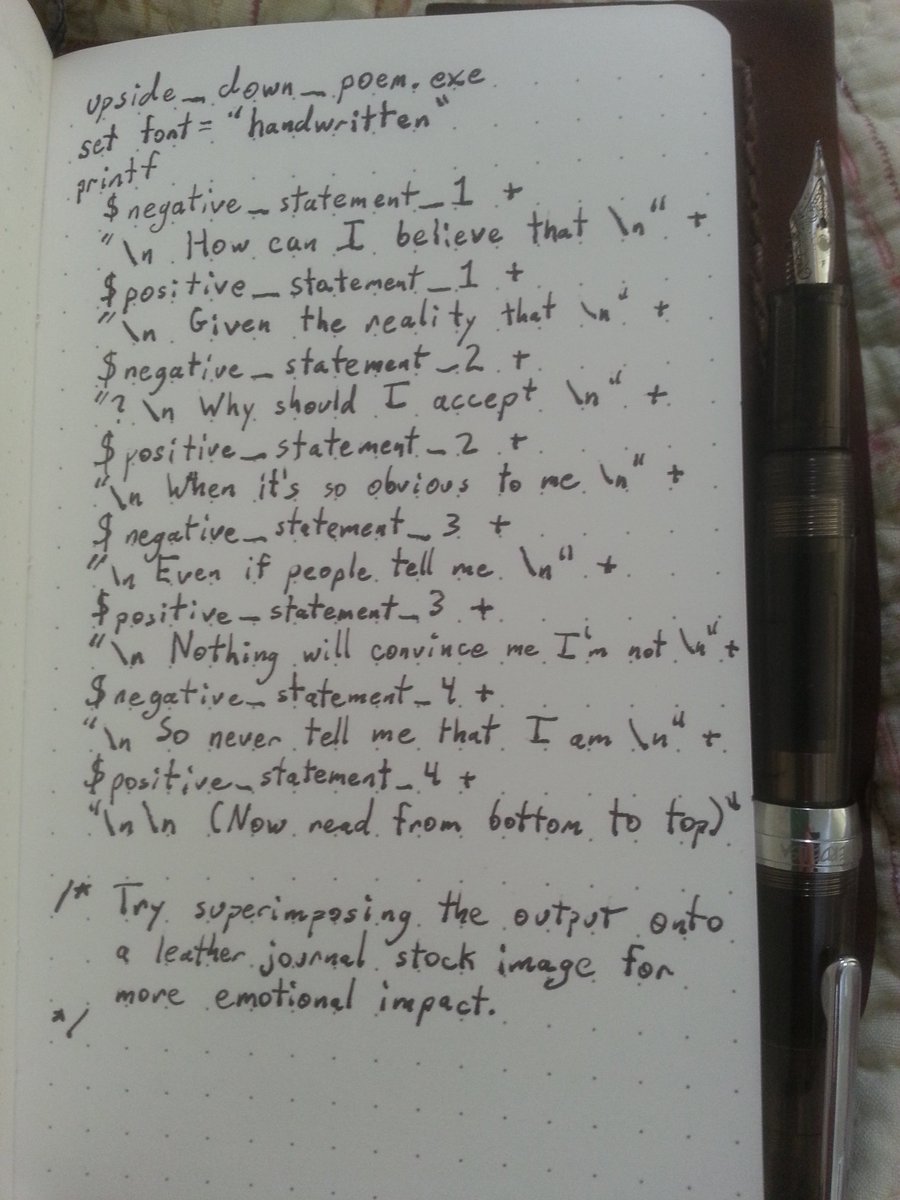 upside_down_poem.exe
set font = "handwritten"
printf
$negative_statement_1 +
"\n How can I believe that \n" +
$positive_statement_1 +
"\n Given the reality that \n" +
$negative_statement_2 +
"? \n Why should I accept \n" +
$positive_statement_2 +
"\n When it's so obvious to me \n" +
$negative_statement_3 +
"\n Even if people tell me \n" +
$positive_statement_3 +
"\n Nothing will convince me I'm not \n" +
$negative_statement_4 +
"\n So never tell me that I am \n" +
$positive_statement_4 +
"\n\n (Now read from bottom to top)"
/* Try superimposing the output onto
a leather journal stock image for
more emotional impact.
*/